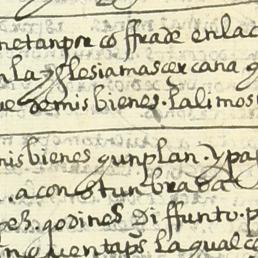 metan por cofrade en la c
n la yglesia mas cercana q
ue de mis bienes. la limos
mis bienes cunplan. y pa
. acostunbrada
godines diffunto. p
la qual c